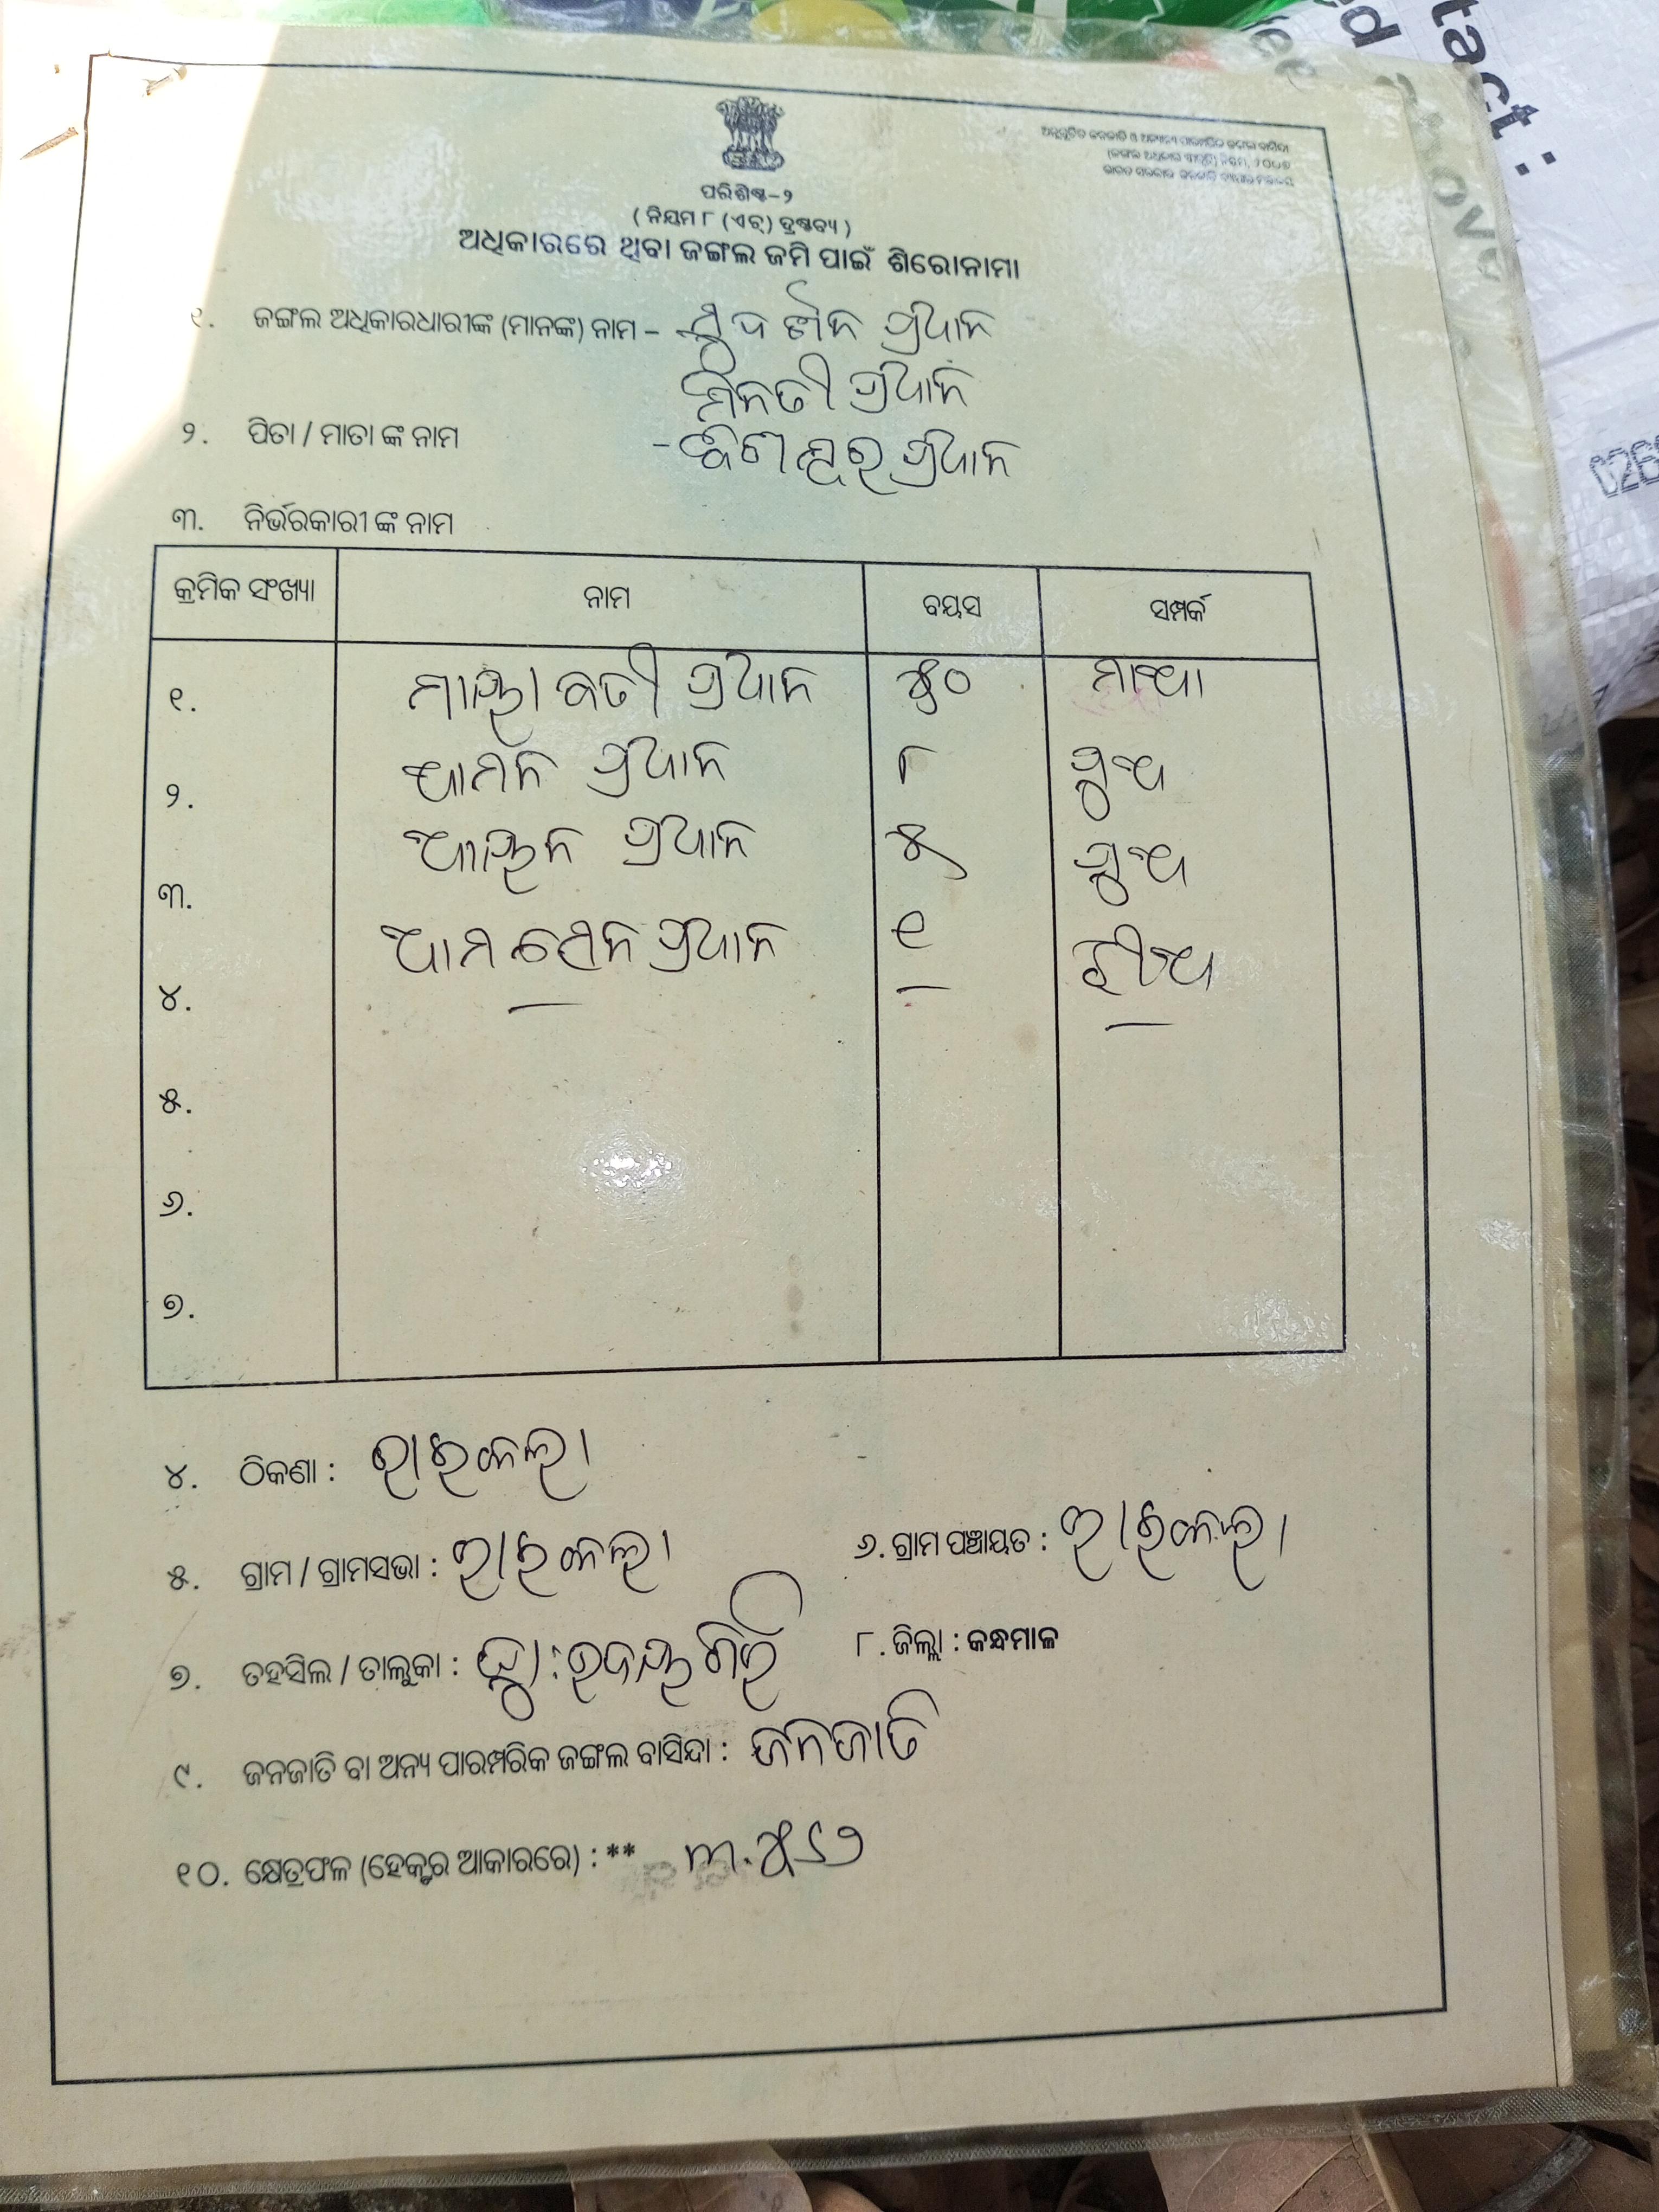 ed
tact :
ପରିଶିଷ୍ଟ-୨
( ନିୟମ ୮ (ଏଚ୍) ଦ୍ରଷ୍ଟବ୍ୟ )
ଅନୁସୂଚିତ ଜନଜାତି ଓ ଅନ୍ୟାନ୍ୟ ପାରମ୍ପରିକ ଜଙ୍ଗଲ ବାସିନ୍ଦା
(ଜଙ୍ଗଲ ଅଧିକାର ସ୍ୱୀକୃତି) ନିୟମ, ୨୦୦୭
ଭାରତ ସରକାର ଜନଜାତି ବ୍ୟାପାର ମନ୍ତ୍ରାଳୟ
ଅଧିକାରରେ ଥିବା ଜଙ୍ଗଲ ଜମି ପାଇଁ ଶିରୋନାମା
୧. ଜଙ୍ଗଲ ଅଧିକାରଧାରୀଙ୍କ (ମାନଙ୍କ) ନାମ – ସୁଦର୍ଶନ ପ୍ରଧାନ
ମିନତୀ ପ୍ରଧାନ
୨. ପିତା / ମାତା ଙ୍କ ନାମ - ପ୍ରଧାନ
୩. ନିର୍ଭରକାରୀ ଙ୍କ ନାମ
କ୍ରମିକ ସଂଖ୍ୟା ନାମ ବୟସ ସମ୍ପର୍କ
୧. ମାୟାବତୀ ପ୍ରଧାନ ୫୦ ମାଆ
୨. ଆମନ ପ୍ରଧାନ ୮ ପୁଅ
୩. ଆୟନ ପ୍ରଧାନ ୫ ପୁଅ
୪. ପ୍ରଧାନ ୧ ଝୀଅ
୫.
୬.
୭.
୪. ଠିକଣା : ରାଇକଲା
୫. ଗ୍ରାମ / ଗ୍ରାମସଭା : ରାଇକଲା ୬. ଗ୍ରାମ ପଞ୍ଚାୟତ : ରାଇକଲା
୭. ତହସିଲ / ତାଲୁକା : ଉଦୟଗିରି ୮. ଜିଲ୍ଲା : କନ୍ଧମାଳ
୯. ଜନଜାତି ବା ଅନ୍ୟ ପାରମ୍ପରିକ ଜଙ୍ଗଲ ବାସିନ୍ଦା : ଜନଜାତି
୧୦. କ୍ଷେତ୍ରଫଳ (ହେକ୍ଟର ଆକାରରେ) : **